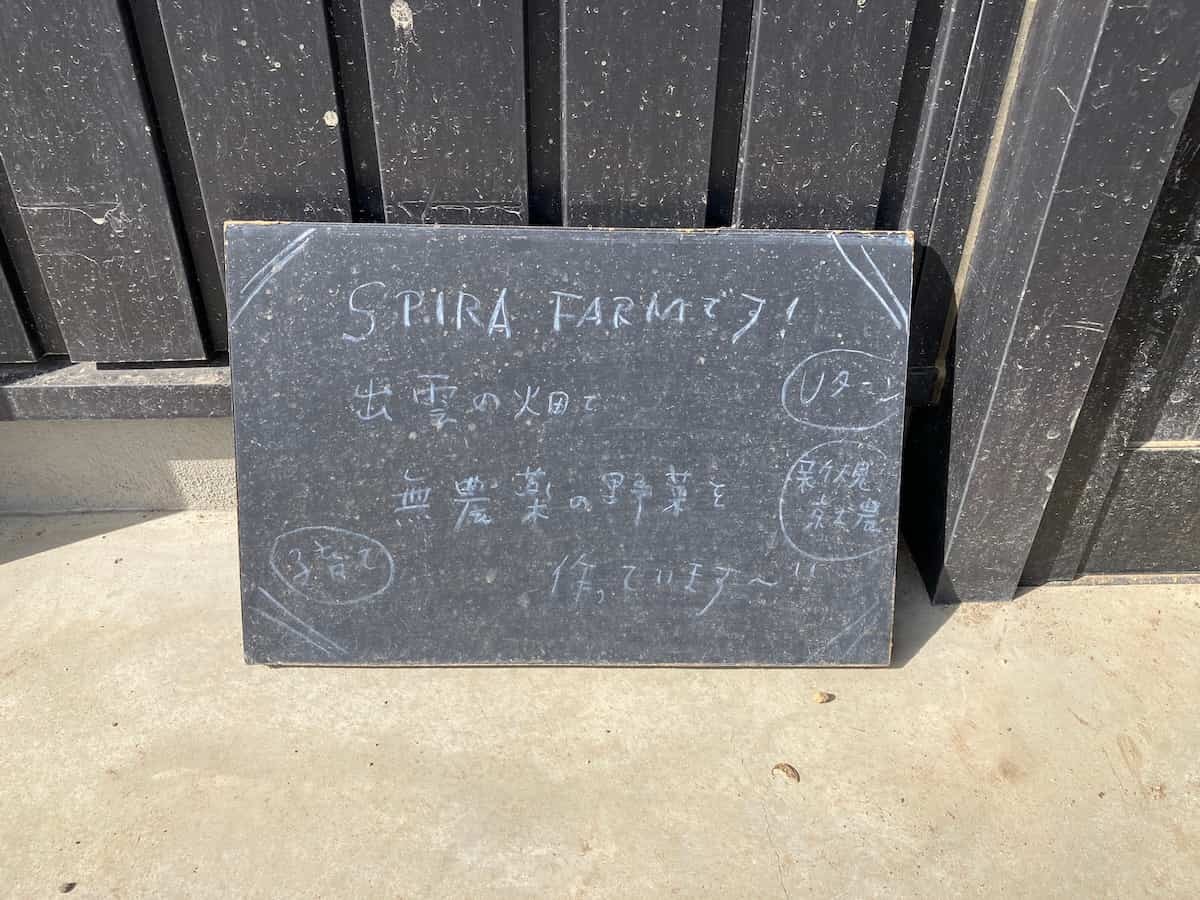 SPIRA FARMです!
出雲の畑で
無農薬の野菜を
作っています〜!!
Uターン
新規
就農
子育て